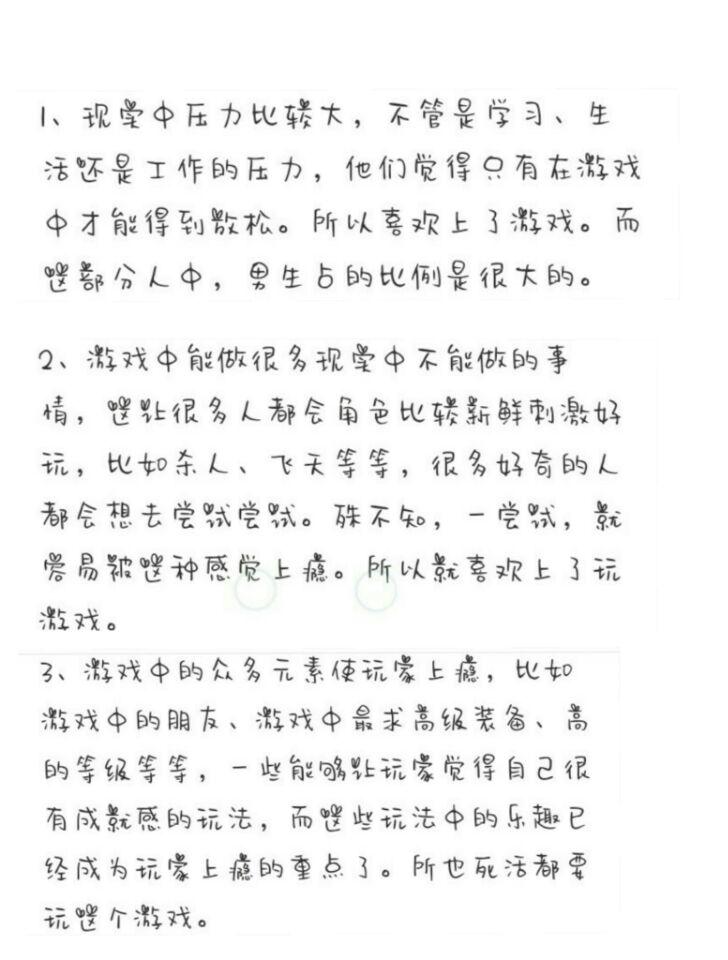 1、现实中压力比较大，不管是学习、生
活还是工作的压力，他们觉得只有在游戏
中才能得到放松。所以喜欢上了游戏。而
这部分人中，男生占的比例是很大的。
2、游戏中能做很多现实中不能做的事
情，这让很多人都会角色比较新鲜刺激好
玩，比如杀人、飞天等等，很多好奇的人
都会想去尝试尝试。殊不知，一尝试，就
容易被这种感觉上瘾。所以就喜欢上了玩
游戏。
3、游戏中的众多元素使玩家上瘾，比如
游戏中的朋友、游戏中最求高级装备、高
的等级等等，一些能够让玩家觉得自己很
有成就感的玩法，而这些玩法中的乐趣已
经成为玩家上瘾的重点了。所也死活都要
玩这个游戏。